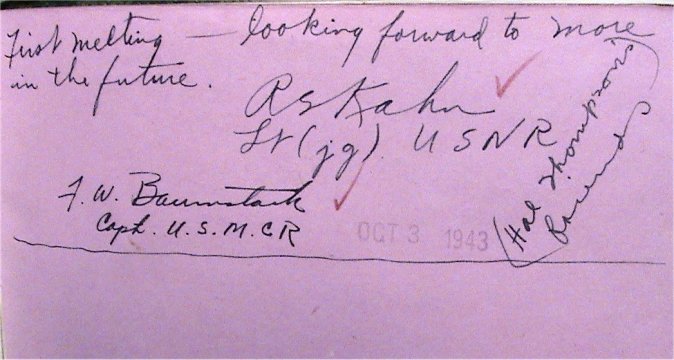 First melting — looking forward to more
in the future.
RSKahn
Lt (jg). USNR
F. W. Baumstark
Capt. U.S.M.C.R
OCT 3 1943
(Hal Thompson's
friend)